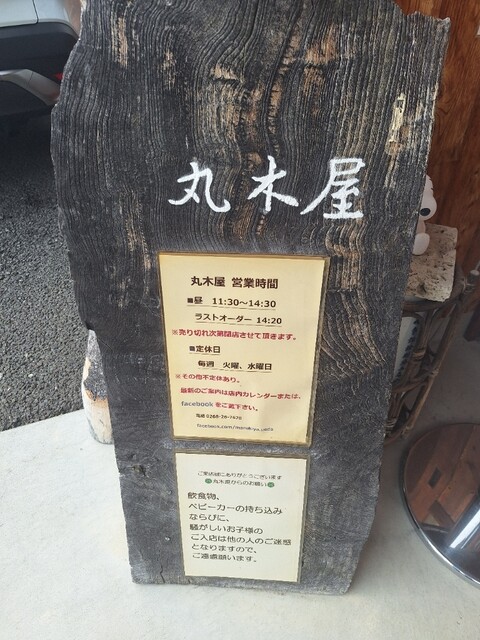 丸木屋
丸木屋 営業時間
■昼 11:30〜14:30
ラストオーダー 14:20
※売り切れ次第閉店させて頂きます。
■定休日
毎週 火曜、水曜日
※その他不定休あり。
最新のご案内は店内カレンダーまたは、
facebook をご覧下さい。
電話 0268-28-7420
ご来店誠にありがとうございます
丸木屋からのお願い
飲食物、
ベビーカーの持ち込み
ならびに、
騒がしいお子様の
ご入店は他の人のご迷惑
となりますので、
ご遠慮願います。